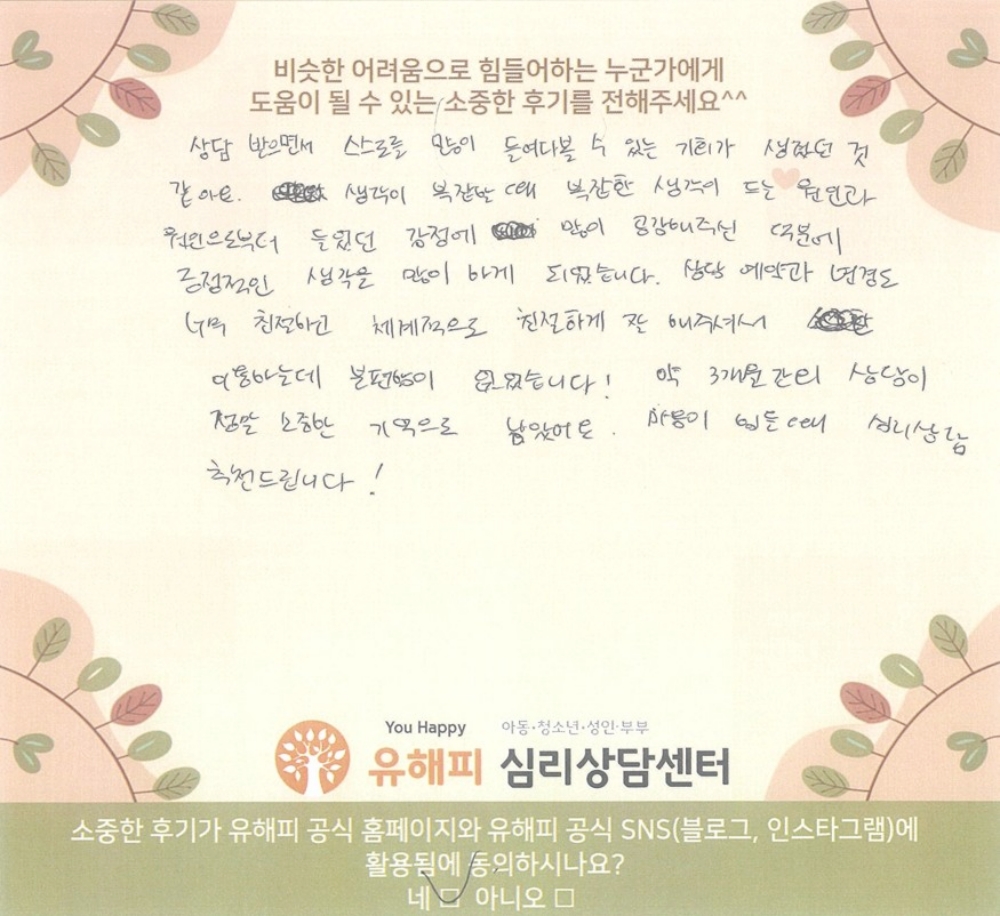 비슷한 어려움으로 힘들어하는 누군가에게
도움이 될 수 있는 소중한 후기를 전해주세요^^
상담 받으면서 스스로를 많이 들여다볼 수 있는 기회가 생겼던 것
같아요. 생각이 복잡할 때 복잡한 생각이 드는 원인과
원인으로부터 들었던 감정에 많이 공감해주신 덕분에
긍정적인 생각을 많이 하게 되었습니다. 상담 예약과 변경도
너무 친절하고 체계적으로 친절하게 잘 해주셔서
이용하는데 불편함이 없었습니다! 약 3개월간의 상담이
정말 소중한 기억으로 남았어요. 마음이 힘들 때 심리상담
추천드립니다!
You Happy 아동·청소년·성인·부부
유해피 심리상담센터
소중한 후기가 유해피 공식 홈페이지와 유해피 공식 SNS(블로그, 인스타그램)에
활용됨에 동의하시나요?
네 □ 아니오 □